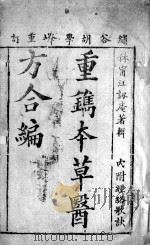 繡谷胡學峰重訂
休寧汪訒庵著輯
內附經絡歌訣
重鐫本草醫
方合編